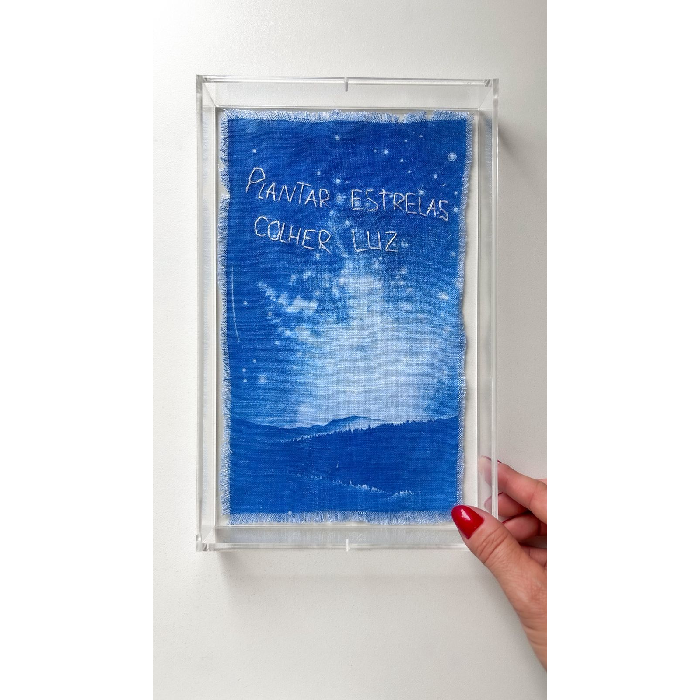 PLANTAR ESTRELAS
COLHER LUZ